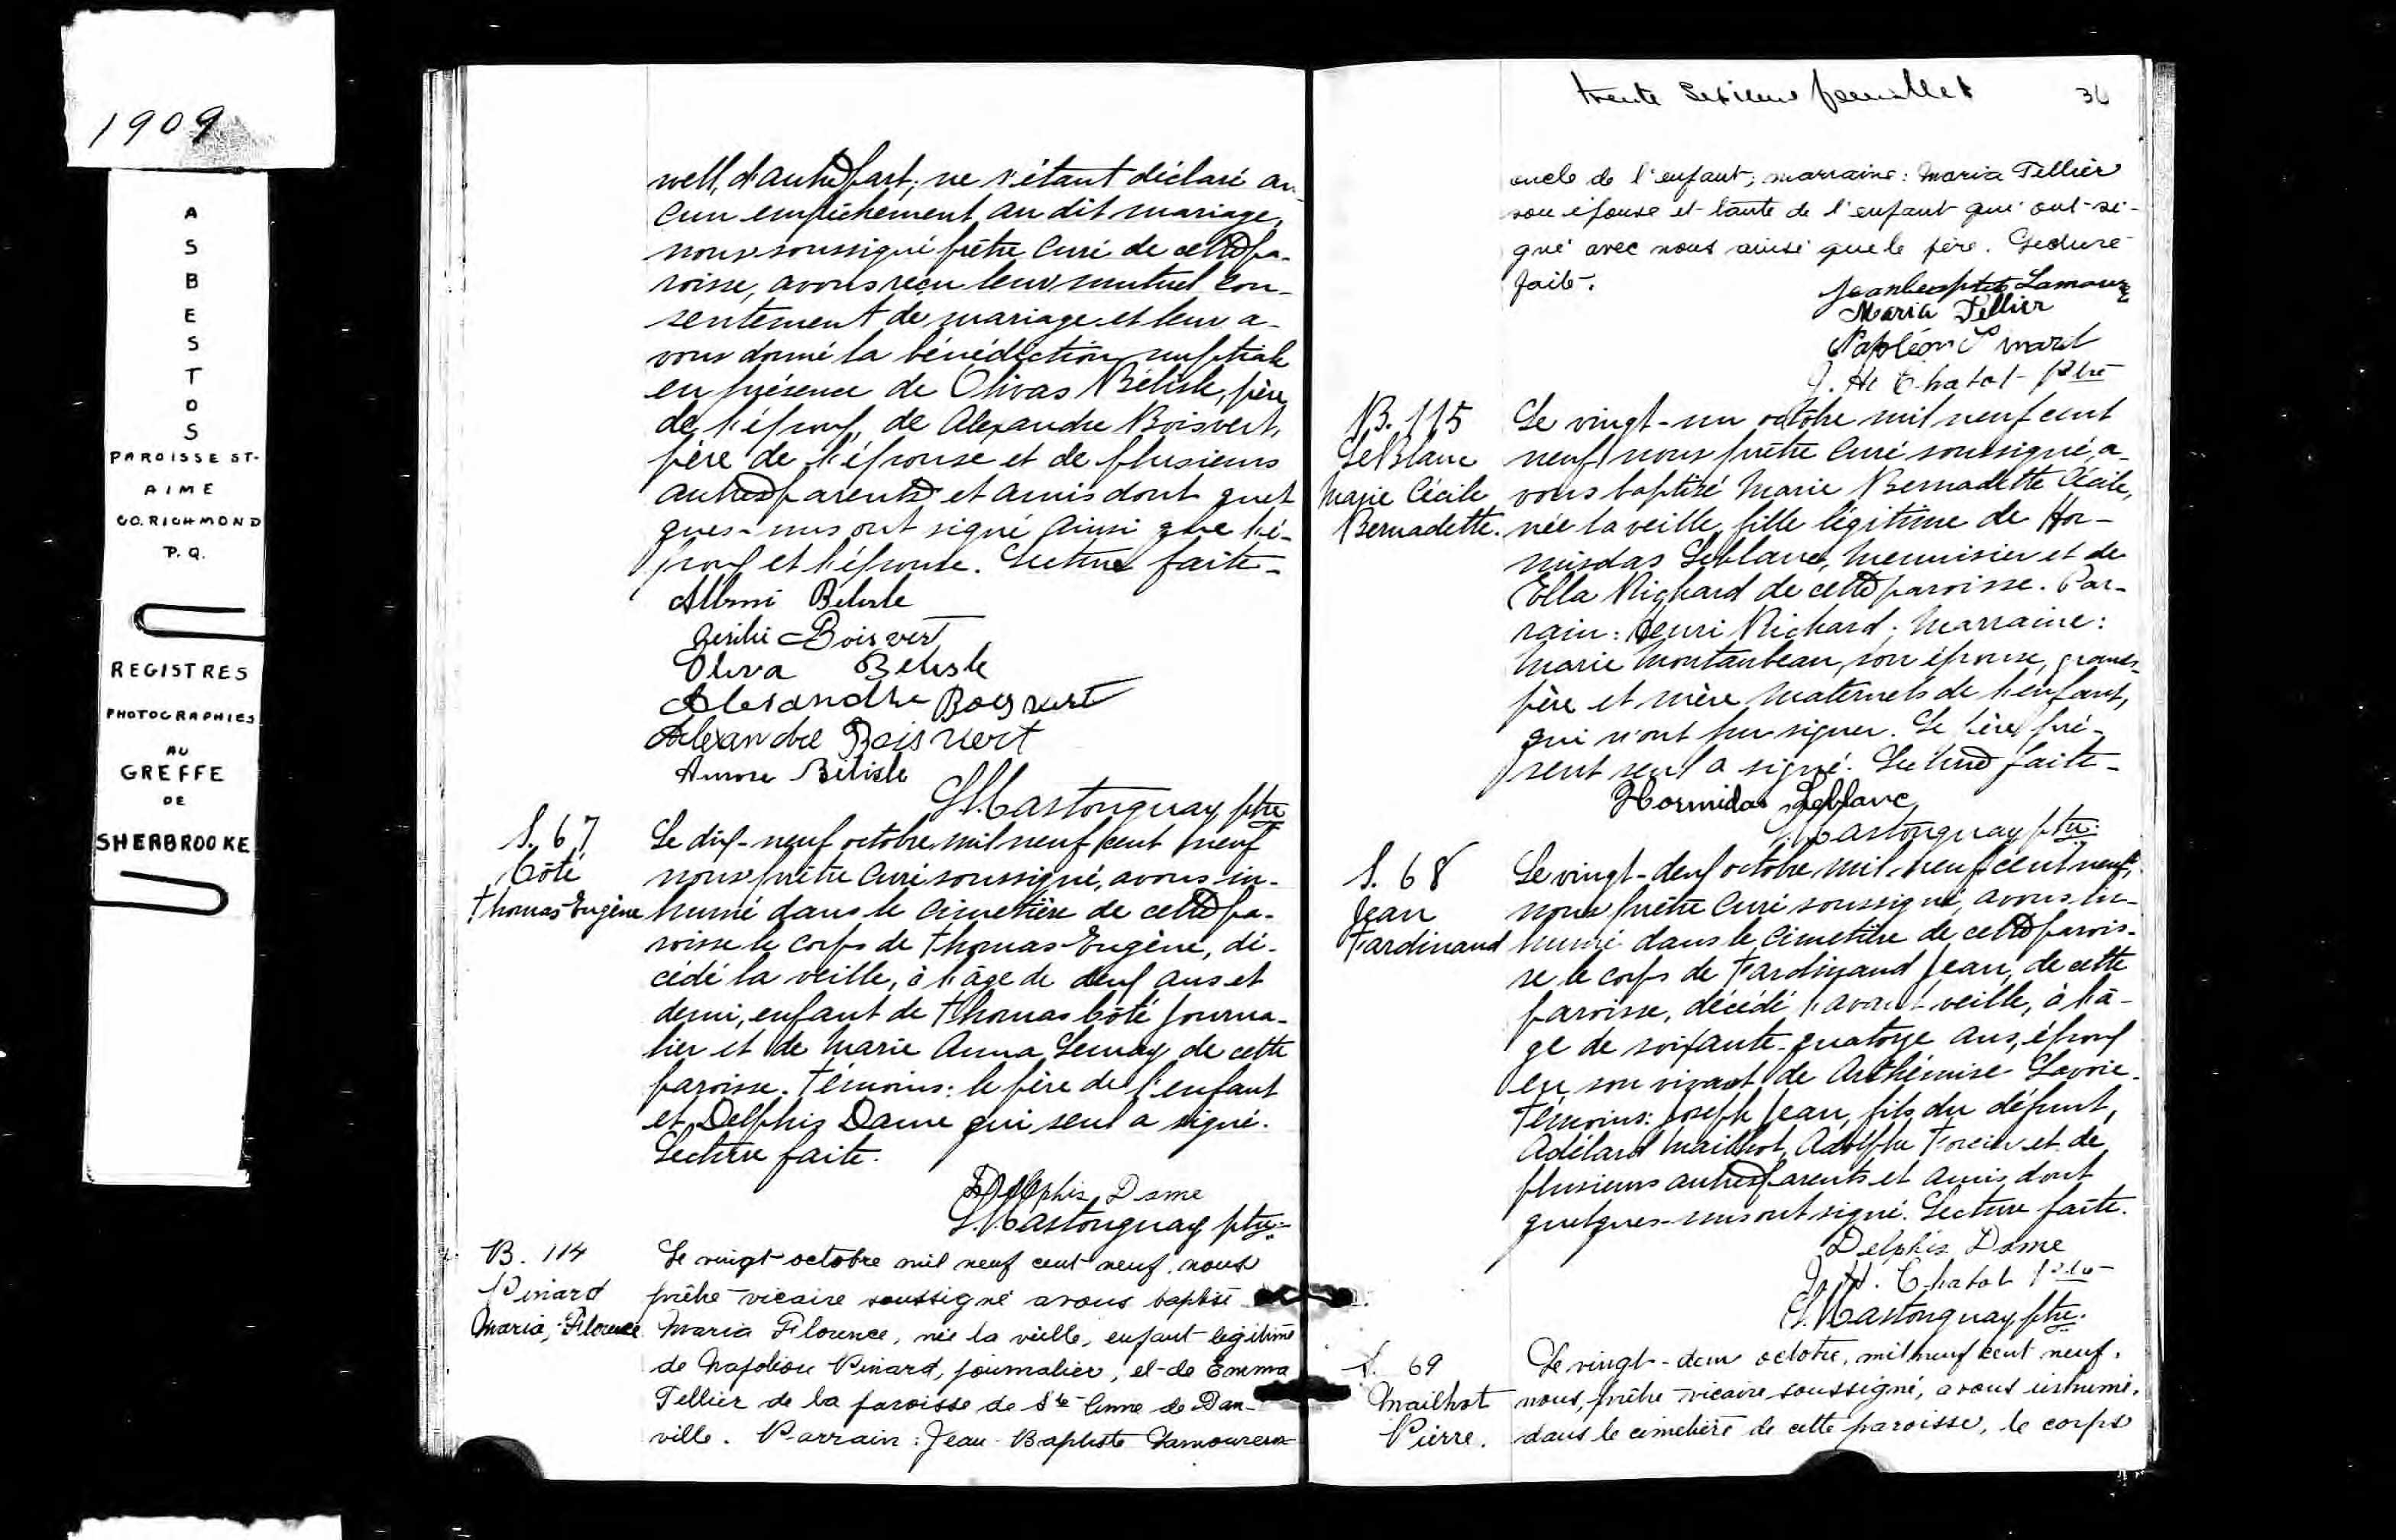 1909
A
S
B
E
S
T
O
S
PAROISSE ST-
AIME
CO. RICHMOND
P.Q.
REGISTRES
PHOTOGRAPHIES
AU
GREFFE
DE
SHERBROOKE
well, d'autre part; ne s'étant déclaré au-
cun empêchement au dit mariage,
nous soussigné prêtre curé de cette pa-
roisse, avons reçu leur mutuel con-
sentement de mariage et leur a-
vons donné la bénédiction nuptiale
en présence de Olivas Bélisle, père
de l'époux, de Alexandre Boisvert,
père de l'épouse et de plusieurs
autres parents et amis dont quel
ques-uns ont signé ainsi que l'é-
poux et l'épouse. Lecture faite-
Belisle
Boisvert
Oliva Belisle
Alexandre Boisvert
Alexandre Boisvert
Aurore Bélisle
Castonguay ptre
S. 67
Côté
Thomas Eugène
Le dix-neuf octobre mil neuf cent neuf
nous prêtre curé soussigné, avons in-
humé dans le cimetière de cette pa-
roisse le corps de Thomas Eugène, dé-
cédé la veille, à l'âge de deux ans et
demi, enfant de Thomas Côté journa-
lier et de Marie Anna Lemay de cette
paroisse. Témoins: le père de l'enfant
et Delphis Dame qui seul a signé.
Lecture faite.
Delphis Dame
Castonguay ptre
B. 114
Pinard
Maria, Florence
Le vingt octobre mil neuf cent neuf, nous
prêtre vicaire soussigné avons baptisé
Maria Florence, née la veille, enfant légitime
de Napoléon Pinard, journalier, et de Emma
Tellier de la paroisse de Ste Anne de Dan-
ville. Parrain: Jean-Baptiste Lamoureux
trente sixième feuillet 36
oncle de l'enfant; marraine: Maria Tellier
son épouse et tante de l'enfant qui ont si-
gné avec nous ainsi que le père. Lecture
faite.
Jean Lamoureux
Maria Tellier
Napoléon Pinard
J. H. Chabot Ptre
B. 115
LeBlanc
Marie Cécile
Bernadette.
Le vingt-un octobre mil neuf cent
neuf nous prêtre curé soussigné, a-
vons baptisé Marie Bernadette Cécile,
née la veille, fille légitime de Hor-
misdas Leblanc, menuisier et de
Ella Richard de cette paroisse. Par-
rain: Henri Richard; Marraine:
Marie Montambeau, son épouse, grands-
père et mère maternels de l'enfant,
qui n'ont pu signer. Le père pré-
sent seul a signé. Lecture faite-
Hormidas Leblanc
Castonguay ptre.
S. 68
Jean
Fardinand
Le vingt-deux octobre mil-neuf cent neuf,
nous prêtre curé soussigné, avons in-
humé dans le cimetière de cette parois-
se le corps de Fardinand Jean, de cette
paroisse, décédé l'avant veille, à l'â-
ge de soixante-quatorze ans, époux
en son vivant de Arthémise Lavoie.
Témoins: Joseph Jean, fils du défunt,
Adélard Mailhot, Adolphe et de
plusieurs autres parents et amis dont
quelques-uns ont signé. Lecture faite.
Delphis Dame
J. H. Chabot Ptre
Castonguay ptre.
S. 69
Mailhot
Pierre.
Le vingt-deux octobre, mil neuf cent neuf,
nous, prêtre vicaire soussigné, avons inhumé,
dans le cimetière de cette paroisse, le corps